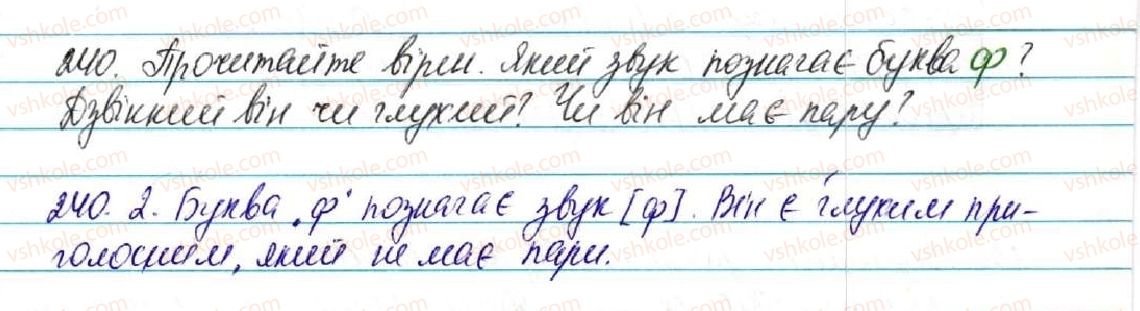 240. Прочитайте вірш. Який звук позначає буква ф?
Дзвінкий він чи глухий? Чи він має пару?
240. 2. Буква „ф“ позначає звук [ф]. Він є глухим при-
голосним, який не має пари.